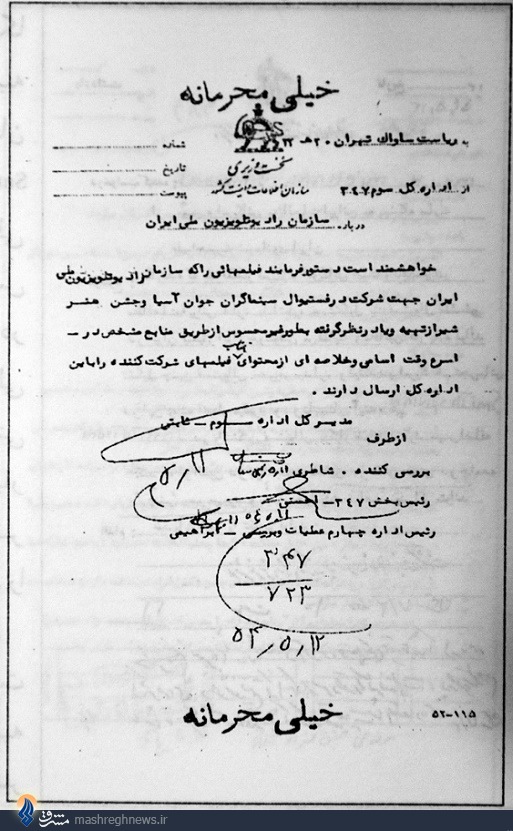 خیلی محرمانه
به ریاست ساواک تهران ۲۰ هـ ۲۲
شماره
نخست وزیری
تاریخ
از اداره کل سوم ۳۴۷
سازمان اطلاعات و امنیت کشور
پیوست
درباره سازمان رادیو تلویزیون ملی ایران
خواهشمند است دستور فرمایند فیلمهائی را که سازمان رادیو تلویزیون ملی
ایران جهت شرکت در فستیوال سینماگران جوان آسیا و جشن هنر
شیراز تهیه و یا در نظر گرفته بطور غیر محسوس از طریق منابع مشخص در –
اسرع وقت اسامی و خلاصه ای از محتوای فیلمهای شرکت کننده را باین
اداره کل ارسال دارند .
مدیر کل اداره سوم – ثابتی
از طرف
بررسی کننده . شاطری
رئیس بخش ۳۴۷ –
رئیس اداره چهارم عملیات و بررسی – ابراهیمی
۳۴۷
۷۲۳
۵۴٫۵٫۱۲
خیلی محرمانه
۵۲-۱۱۵
مشرق mashreghnews.ir